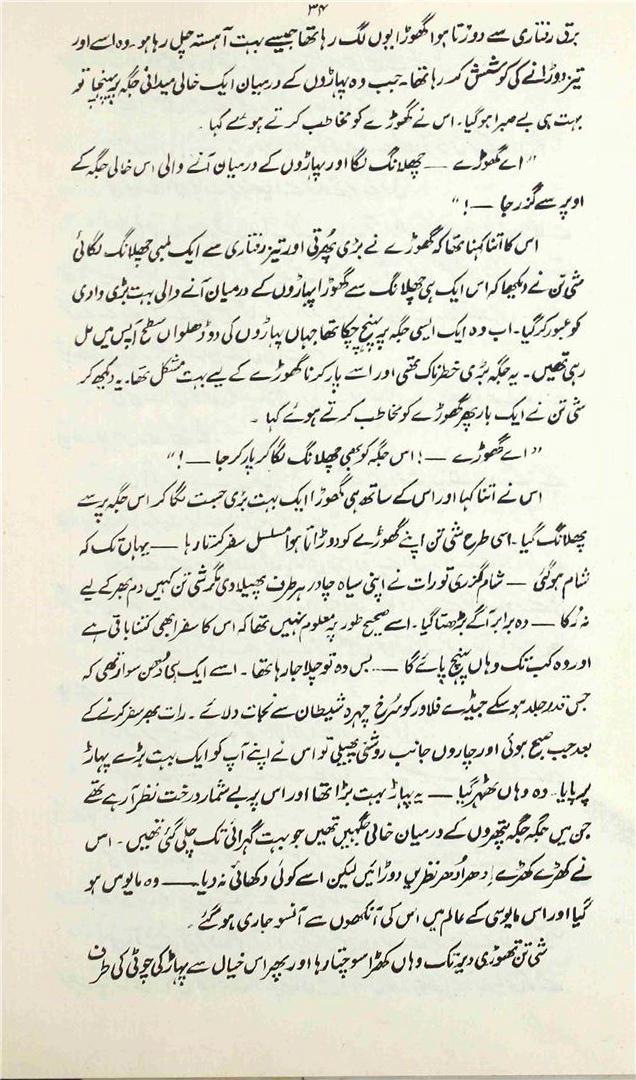 ۳۴
برق رفتاری سے دوڑتا ہوا گھوڑا یوں لگ رہا تھا جیسے بہت آہستہ چل رہا ہو۔ وہ اسے اور
تیز دوڑانے کی کوشش کر رہا تھا۔ جب وہ پہاڑوں کے درمیان ایک خالی میدانی جگہ پر پہنچا تو
بہت ہی بے صبرا ہو گیا۔ اس نے گھوڑے کو مخاطب کرتے ہوئے کہا۔
"اے گھوڑے — چھلانگ لگا اور پہاڑوں کے درمیان آنے والی اس خالی جگہ کے
اوپر سے گزر جا —!"
اس کا اتنا کہنا تھا کہ گھوڑے نے بڑی پھرتی اور تیز رفتاری سے ایک لمبی چھلانگ لگائی
شی تن نے دیکھا کہ اس ایک ہی چھلانگ سے گھوڑا پہاڑوں کے درمیان آنے والی بہت بڑی وادی
کو عبور کر گیا۔ اب وہ ایک ایسی جگہ پر پہنچ چکا تھا جہاں پہاڑوں کی دو ڈھلواں سطح آپس میں مل
رہی تھیں۔ یہ جگہ بڑی خطرناک تھی اور اسے پار کرنا گھوڑے کے لیے بہت مشکل تھا۔ یہ دیکھ کر
شی تن نے ایک بار پھر گھوڑے کو مخاطب کرتے ہوئے کہا۔
"اے گھوڑے —! اس جگہ کو بھی چھلانگ لگا کر پار کر جا —!"
اس نے اتنا کہا اور اس کے ساتھ ہی گھوڑا ایک بہت بڑی جست لگا کر اس جگہ پر سے
پھلانگ گیا۔ اسی طرح شی تن اپنے گھوڑے کو دوڑاتا ہوا مسلسل سفر کرتا رہا — یہاں تک کہ
شام ہو گئی — شام گزری تو رات نے اپنی سیاہ چادر ہر طرف پھیلا دی مگر شی تن کہیں دم بھر کے لیے
نہ رُکا — وہ برابر آگے بڑھتا گیا۔ اسے صحیح طور پر معلوم نہیں تھا کہ اس کا سفر ابھی کتنا باقی ہے
اور وہ کب تک وہاں پہنچ پائے گا — بس وہ تو چلا جا رہا تھا۔ اسے ایک ہی دھن سوار تھی کہ
جس قدر جلد ہو سکے جیڈے فلاور کو سُرخ چہرہ شیطان سے نجات دلائے۔ رات بھر سفر کرنے کے
بعد جب صبح ہوئی اور چاروں جانب روشنی پھیلی تو اس نے اپنے آپ کو ایک بہت بڑے پہاڑ
پر پایا۔ وہ وہاں ٹھہر گیا — یہ پہاڑ بہت بڑا تھا اور اس پر بے شمار درخت نظر آ رہے تھے
جن میں جگہ جگہ پتھروں کے درمیان خالی جگہیں تھیں جو بہت گہرائی تک چلی گئی تھیں۔ اس
نے کھڑے کھڑے اِدھر اُدھر نظریں دوڑائیں لیکن اسے کوئی دکھائی نہ دیا — وہ مایوس ہو
گیا اور اس مایوسی کے عالم میں اس کی آنکھوں سے آنسو جاری ہو گئے۔
شی تن تھوڑی دیر تک وہاں کھڑا سوچتا رہا اور پھر اس خیال سے پہاڑ کی چوٹی کی طرف